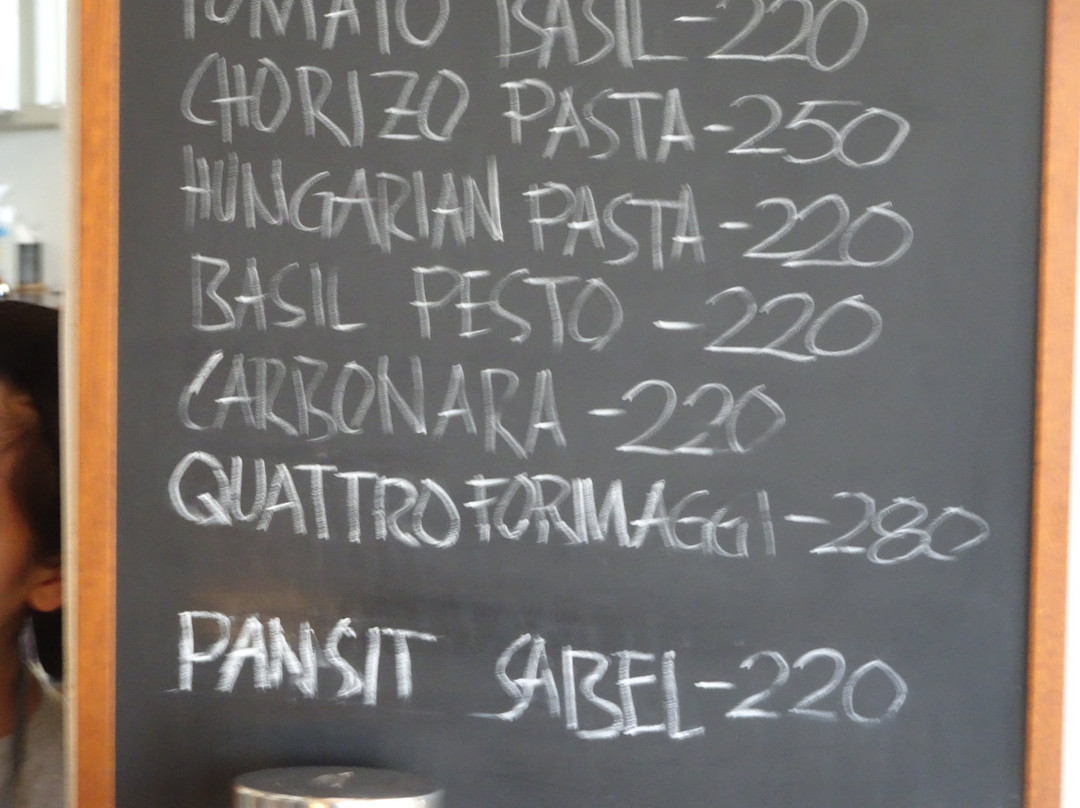 TOMATO BASIL-220
CHORIZO PASTA-250
HUNGARIAN PASTA-220
BASIL PESTO -220
CARBONARA-220
QUATTRO FORMAGGI-280
PANSIT SABEL-220